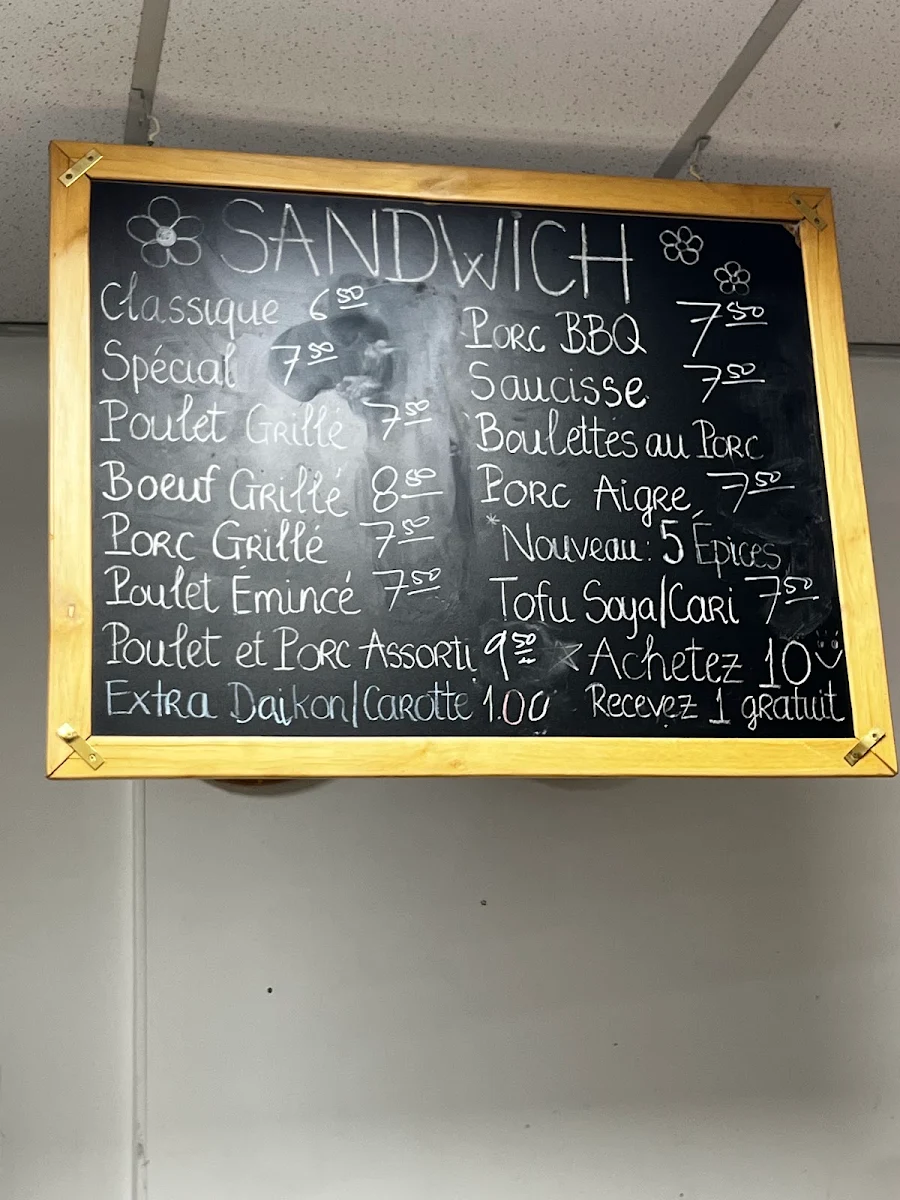 SANDWICH
Classique 6.50
Spécial 7.50
Poulet Grillé 7.50
Boeuf Grillé 8.50
Porc Grillé 7.50
Poulet Émincé 7.50
Poulet et Porc Assorti 9.50
Extra Daikon/Carotte 1.00
Porc BBQ 7.50
Saucisse 7.50
Boulettes au Porc
Porc Aigre 7.50
*Nouveau: 5 Épices
Tofu Soya/Cari 7.50
☆ Achetez 10
Recevez 1 gratuit